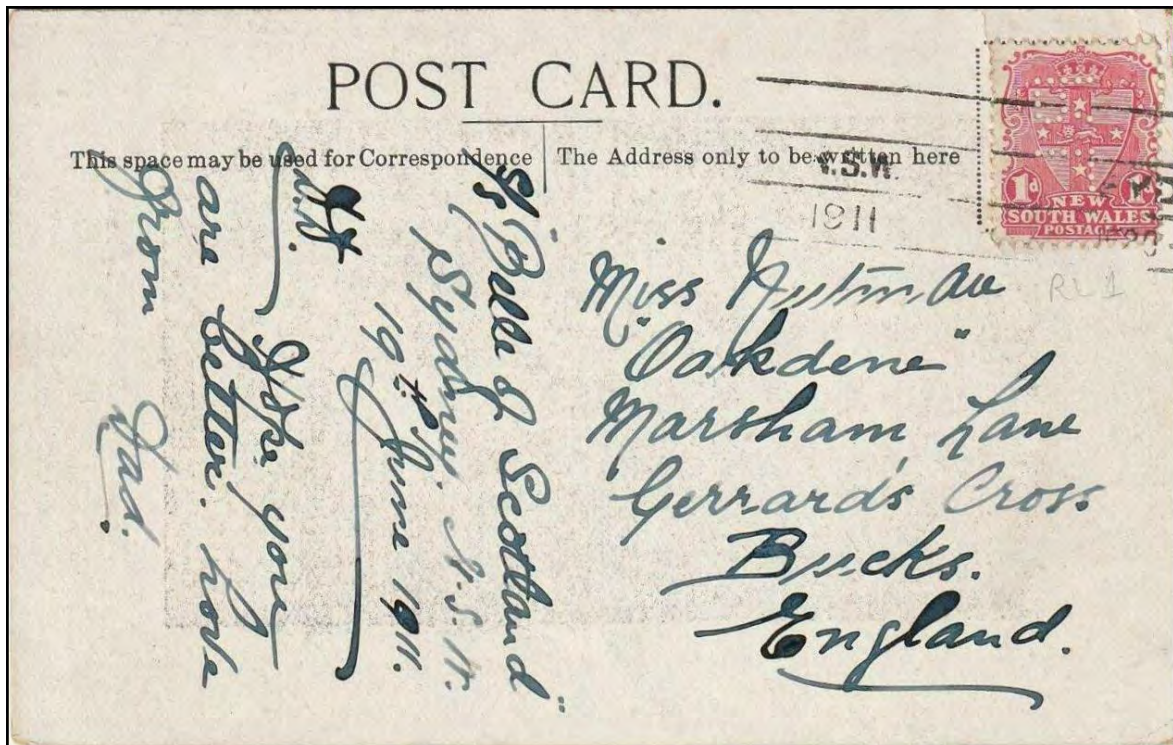 POST CARD.
This space may be used for Correspondence
The Address only to be written here
N.S.W.
1911
1d 1d
NEW
SOUTH WALES
POSTAGE
RL1
S/S "Bella of Scotland"
Sydney. N.S.W.
19th June 1911.
Hope you
are better. Love
From Dad.
Miss
"Oakdene"
Marsham Lane
Gerrards Cross
Bucks.
England.